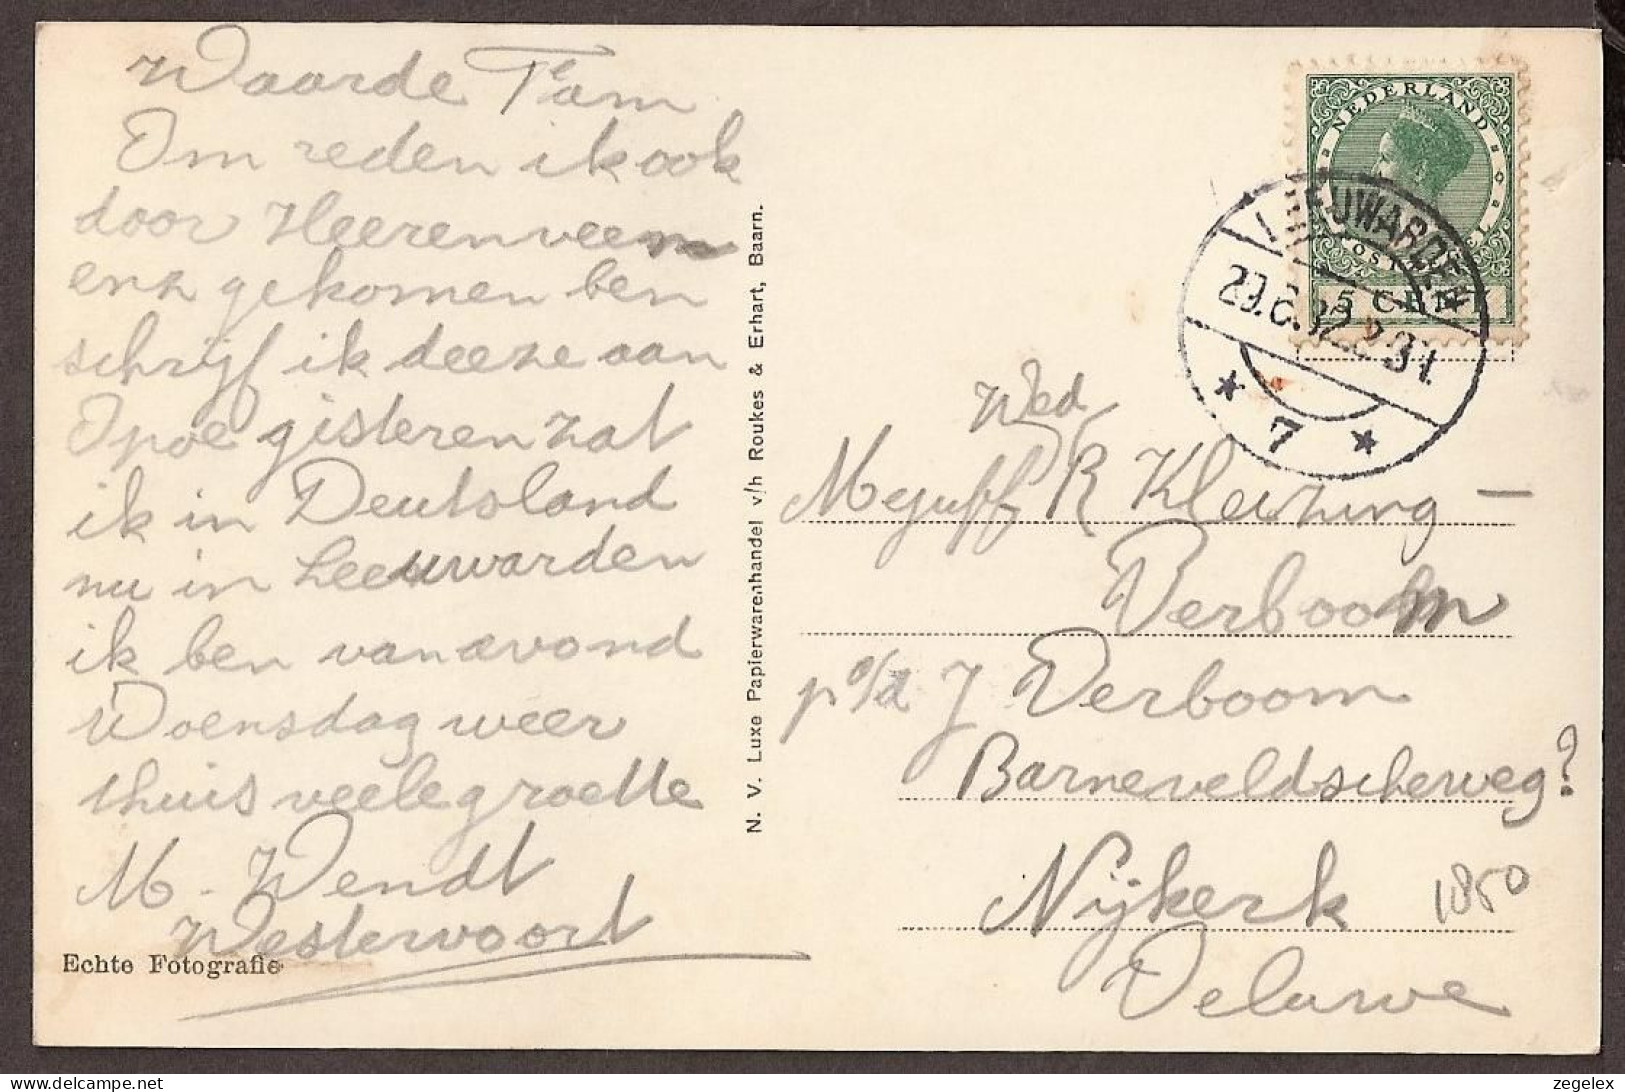 Waarde Fam
Om reden ik ook
door Heerenveen
enz gekomen ben
schrijf ik deeze aan
Opoe gisteren zat
ik in Deutsland
nu in Leeuwarden
ik ben van avond
Woensdag weer
thuis veele groette
M. Wendt
Westervoort
Echte Fotografie
N. V. Luxe Papierwarenhandel v/h Roukes & Erhart, Baarn.
NEDERLAND
5 CENT
LEEUWARDEN
7
Wed
Mejuff R Kleizung –
Verboom
p/a J Verboom
Barneveldscherweg?
Nijkerk
Veluwe
1850
zegelex